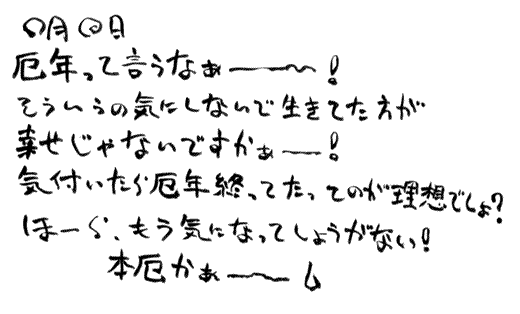 〇月〇日
厄年って言うなぁ――〜！
そういうの気にしないで生きてた方が
幸せじゃないですかぁ――！
気付いたら厄年終ってたってのが理想でしょ？
ほーら、もう気になってしょうがない！
本厄かぁ――〜し